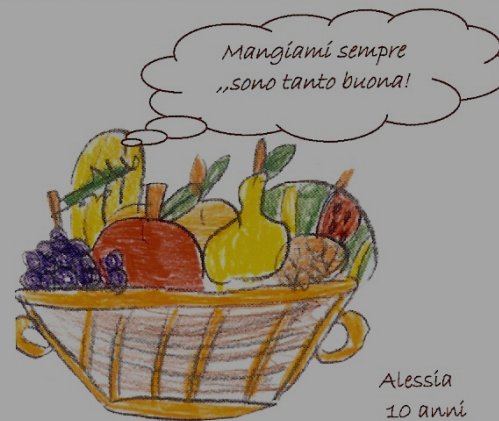 Mangiami sempre
,,sono tanto buona!
Alessia
10 anni